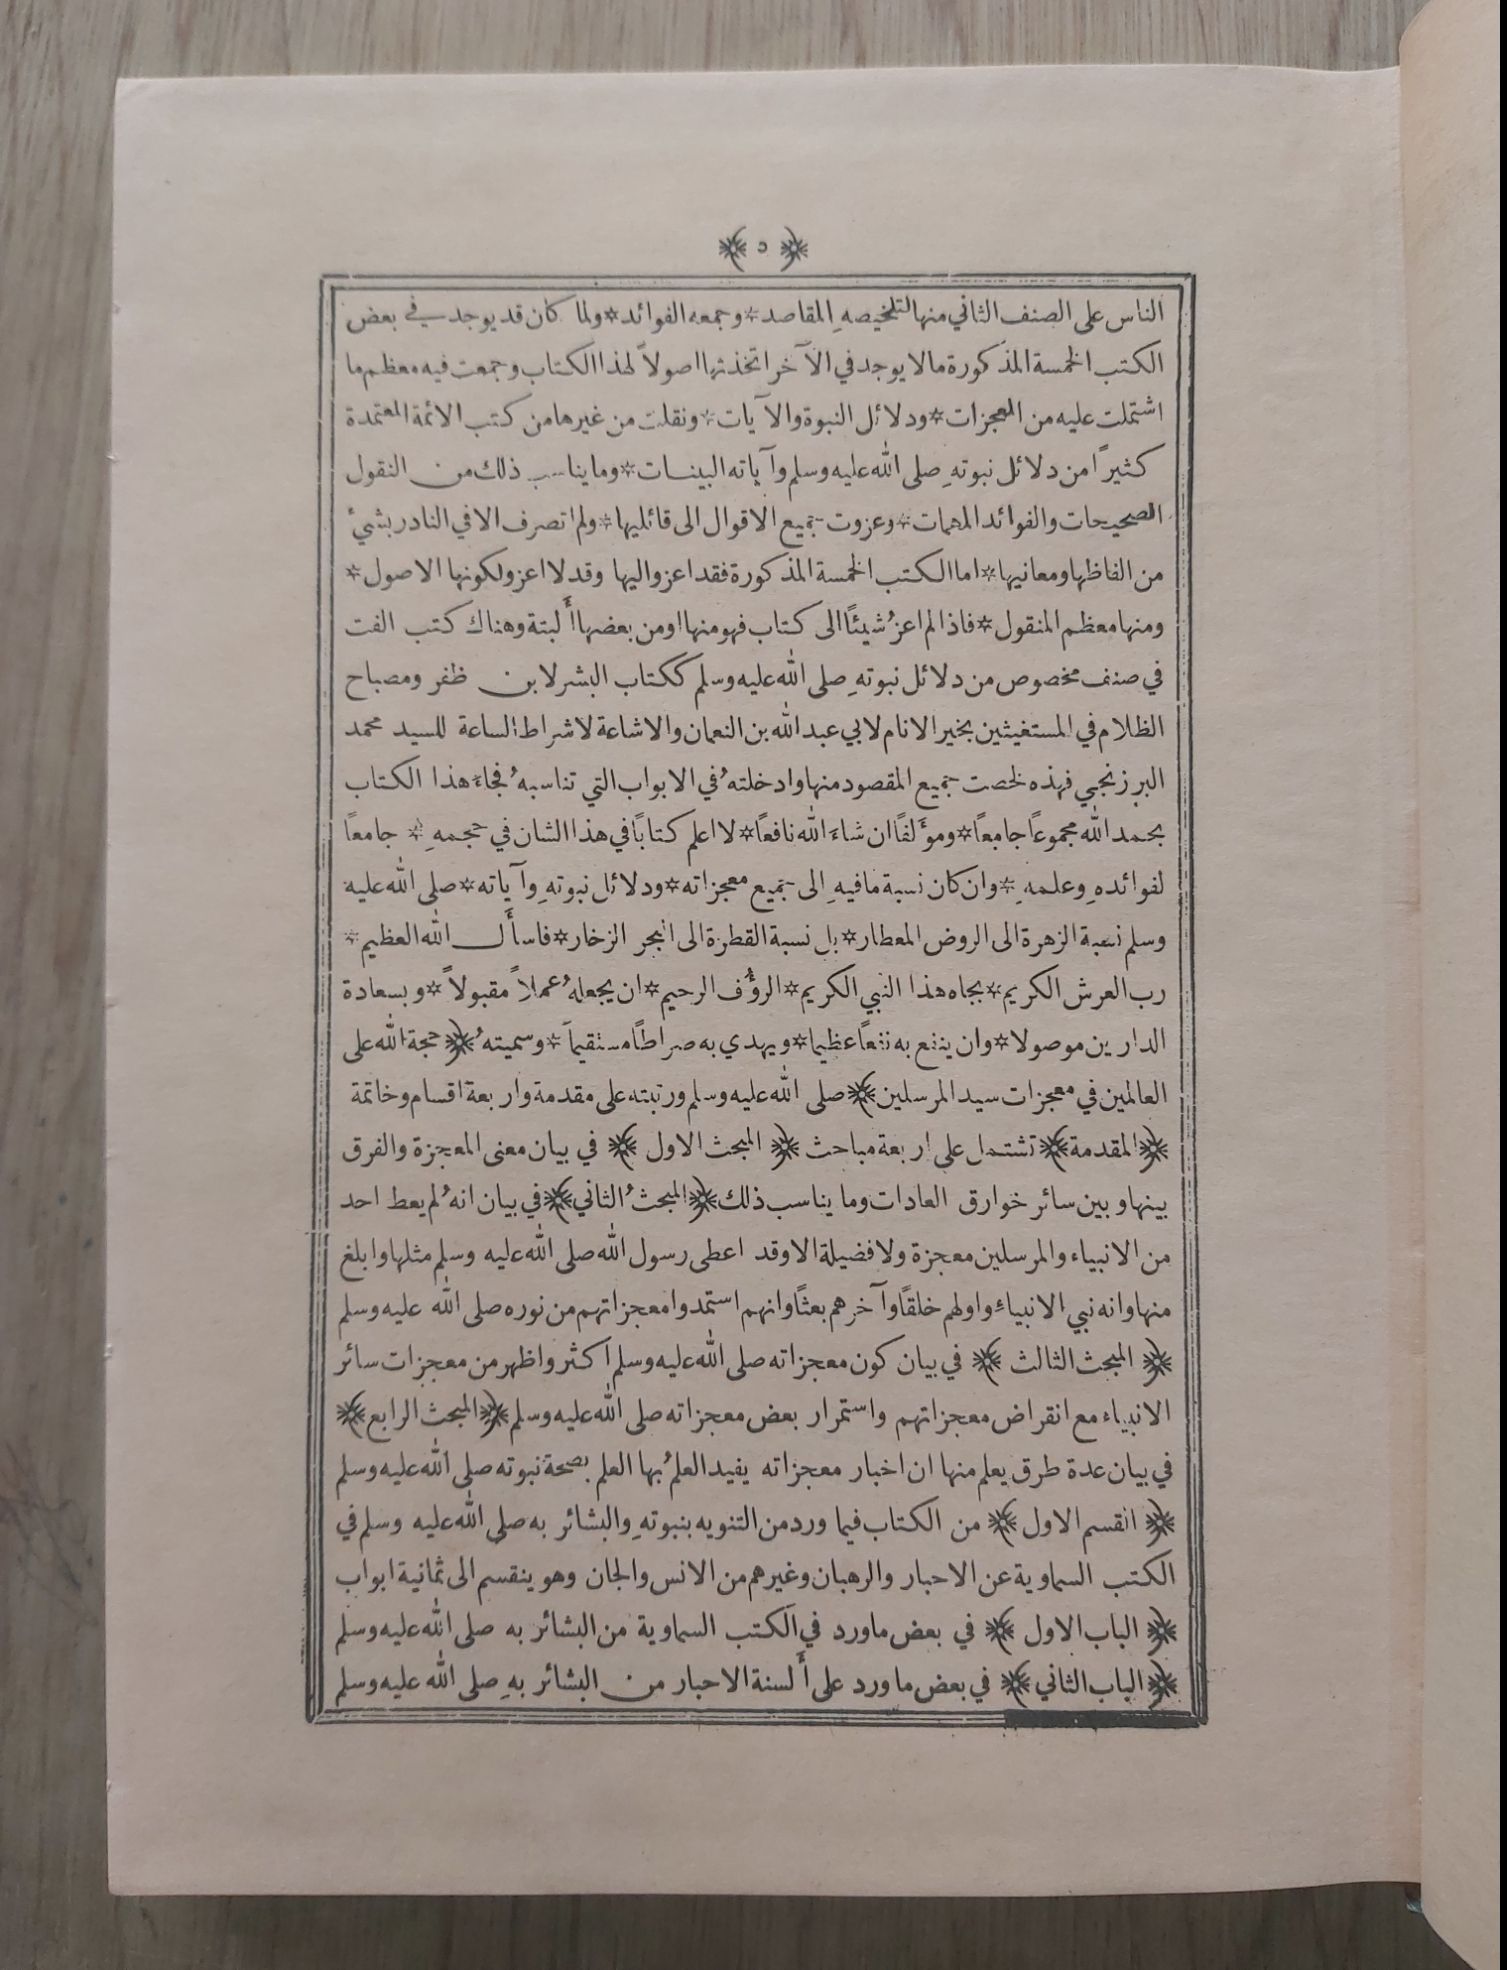 ﴿ ٥ ﴾
الناس على الصنف الثاني منها لتلخيصهِ المقاصد * وجمعه الفوائد * ولما كان قد يوجد في بعض
الكتب الخمسة المذكورة مالا يوجد في الآخر اتخذتها اصولاً لهذا الكتاب وجمعت فيه معظم ما
اشتملت عليه من المعجزات * ودلائل النبوة والآيات * ونقلت من غيرها من كتب الائمة المعتمدة
كثيرًا من دلائل نبوتهِ صلى الله عليه وسلم وآياته البينات * وما يناسب ذلك من النقول
الصحيحات والفوائد المهمات * وعزوت جميع الاقوال الى قائليها * ولم اتصرف الا في النادر بشيءٍ
من الفاظها ومعانيها * اما الكتب الخمسة المذكورة فقد اعزو اليها وقد لا اعزو لكونها الاصول *
ومنها معظم المنقول * فاذا لم اعزُ شيئًا الى كتاب فهو منها او من بعضها أَلبتة وهناك كتب الفت
في صنف مخصوص من دلائل نبوتهِ صلى الله عليه وسلم ككتاب البشر لابن ظفر ومصباح
الظلام في المستغيثين بخير الانام لابي عبد الله بن النعمان والاشاعة لاشراط الساعة للسيد محمد
البرزنجي فهذه لخصت جميع المقصود منها وادخلتهُ في الابواب التي تناسبهُ فجاء هذا الكتاب
بحمد الله مجموعاً جامعاً * ومؤَلفاً ان شاءَ الله نافعاً * لا اعلم كتابًا في هذا الشان في حجمهِ * جامعاً
لفوائدهِ وعلمهِ * وان كان نسبة ما فيهِ الى جميع معجزاته * ودلائل نبوتهِ وآياته * صلى الله عليه
وسلم نسبة الزهرة الى الروض المعطار * بل نسبة القطرة الى البحر الزخار * فاسأَل الله العظيم *
رب العرش الكريم * بجاه هذا النبي الكريم * الرؤُف الرحيم * ان يجعلهُ عملاً مقبولاً * وبسعادة
الدارين موصولا * وان ينفع به نفعاً عظيما * ويهدي به صراطًا مستقيماً * وسميتهُ ﴿ حجة الله على
العالمين في معجزات سيد المرسلين ﴾ صلى الله عليه وسلم ورتبته على مقدمة واربعة اقسام وخاتمة
﴿ المقدمة ﴾ تشتمل على اربعة مباحث ﴿ المبحث الاول ﴾ في بيان معنى المعجزة والفرق
بينها وبين سائر خوارق العادات وما يناسب ذلك ﴿ المبحثُ الثاني ﴾ في بيان انهُ لم يعط احد
من الانبياء والمرسلين معجزة ولا فضيلة الا وقد اعطى رسول الله صلى الله عليه وسلم مثلها وابلغ
منها وانه نبي الانبياءِ واولهم خلقًا وآخرهم بعثًا وانهم استمدوا معجزاتهم من نوره صلى الله عليه وسلم
﴿ المبحث الثالث ﴾ في بيان كون معجزاته صلى الله عليه وسلم اكثر واظهر من معجزات سائر
الانبياء مع انقراض معجزاتهم واستمرار بعض معجزاته صلى الله عليه وسلم ﴿ المبحث الرابع ﴾
في بيان عدة طرق يعلم منها ان اخبار معجزاته يفيد العلمُ بها العلم بصحة نبوته صلى الله عليه وسلم
﴿ القسم الاول ﴾ من الكتاب فيما ورد من التنويه بنبوتهِ والبشائر به صلى الله عليه وسلم في
الكتب السماوية عن الاحبار والرهبان وغيرهم من الانس والجان وهو ينقسم الى ثمانية ابواب
﴿ الباب الاول ﴾ في بعض ما ورد في الكتب السماوية من البشائر به صلى الله عليه وسلم
﴿ الباب الثاني ﴾ في بعض ما ورد على أَلسنة الاحبار من البشائر بهِ صلى الله عليه وسلم